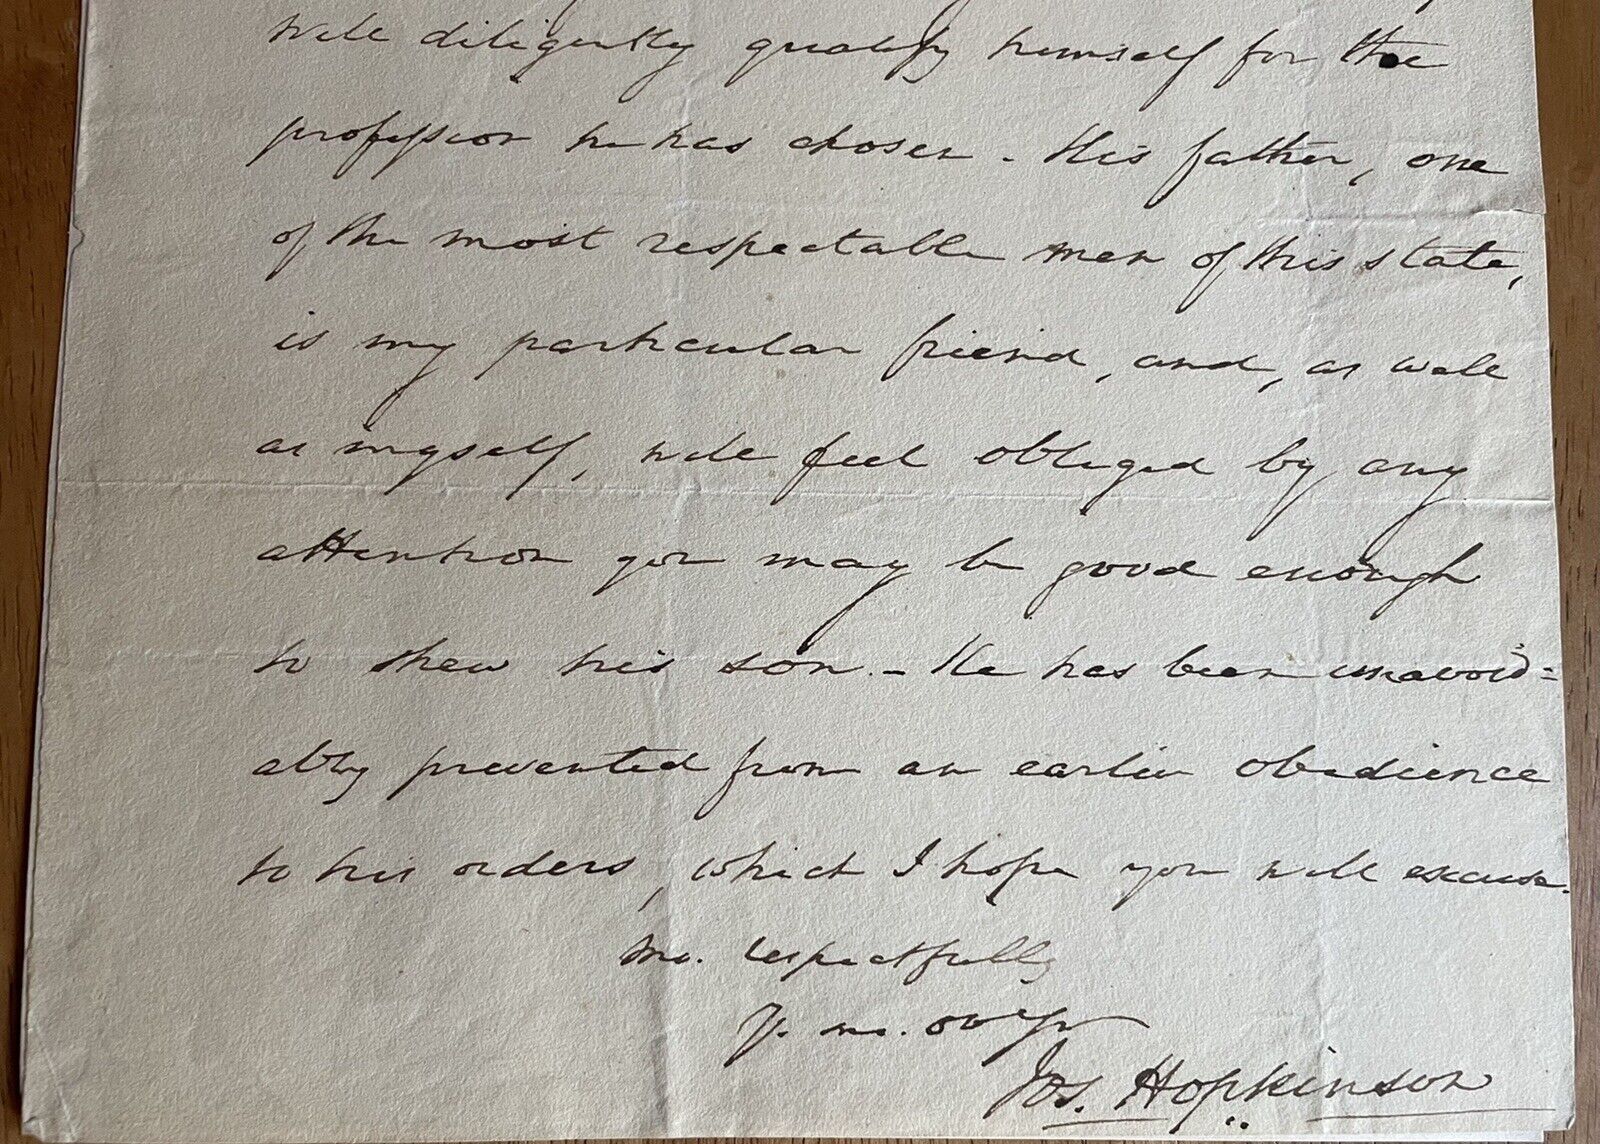 will diligently qualify himself for the
profession he has chosen - His father, one
of the most respectable men of this state,
is my particular friend, and, as well
as myself, will feel obliged by any
attention you may be good enough
to shew his son. - He has been unavoid=
ably prevented from an earlier obedience
to his orders, which I hope you will excuse.
Mo. respectfully
Y. mo. ob
Jos. Hopkinson